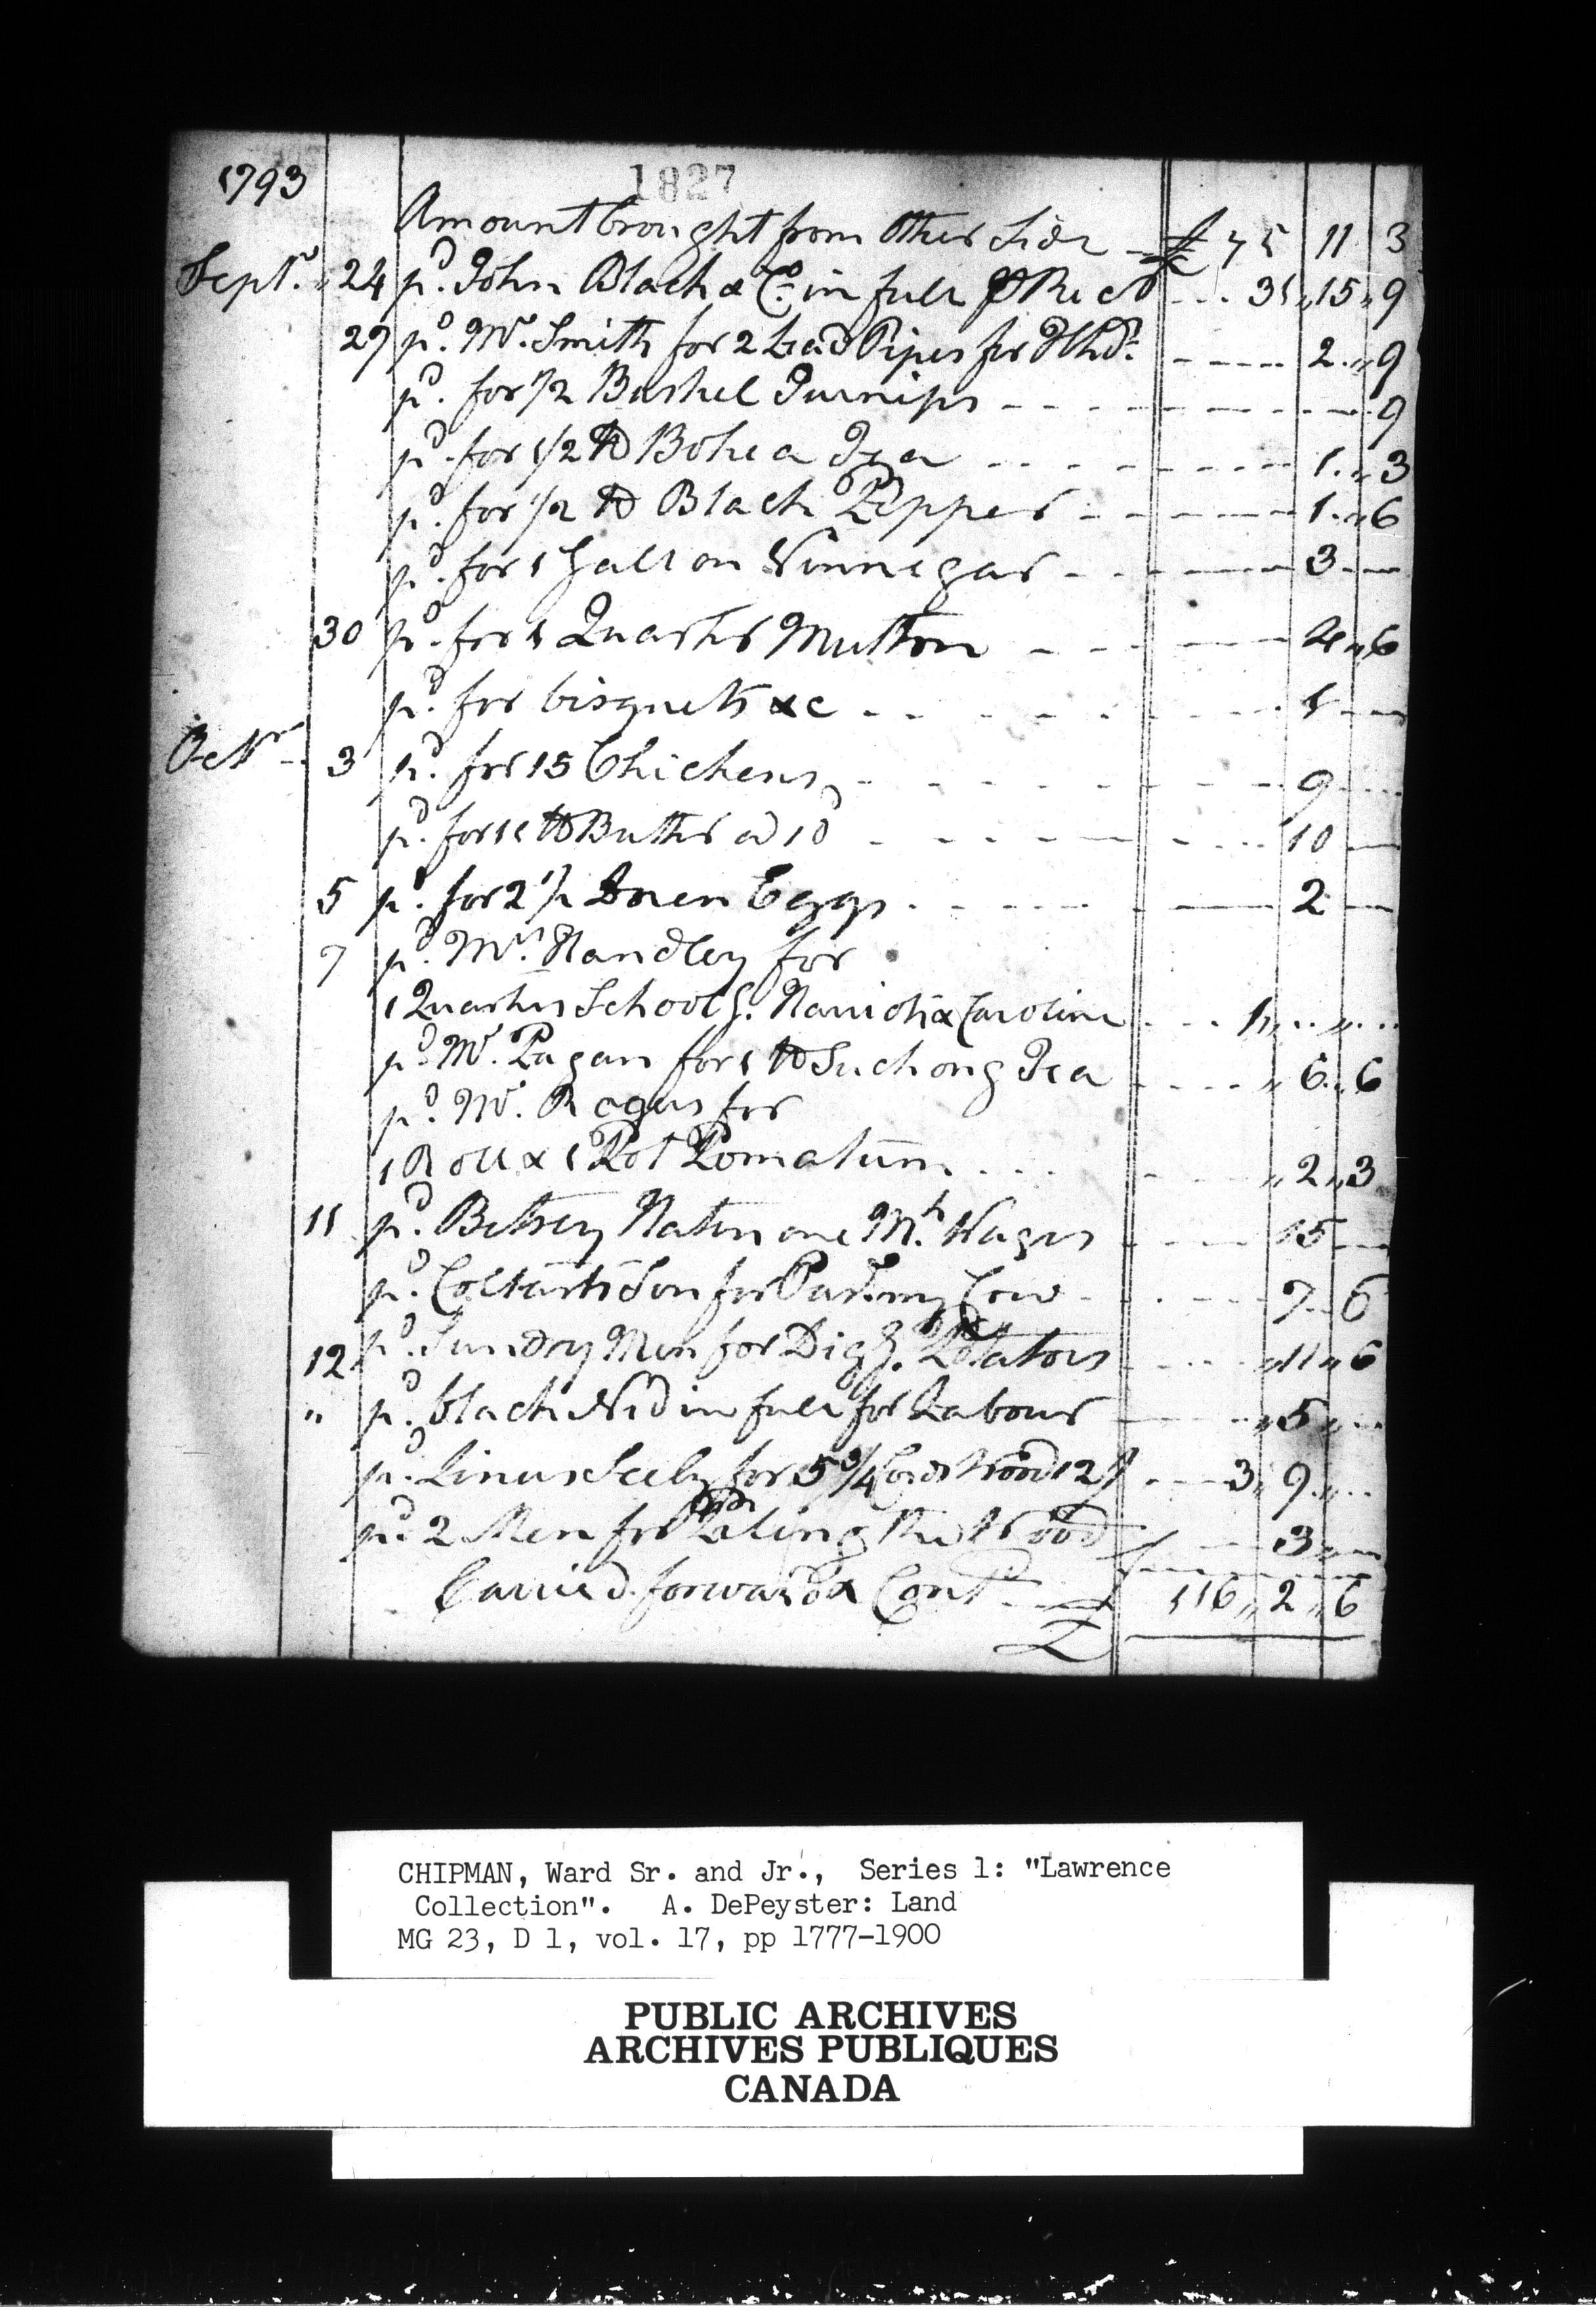 1793
1827
Amount brought from Other Side £ 75 11 3
Septr. 24 pd. John Black & Co. in full Rect 31 15 9
29 pd. Mr. Smith for 2 Lead Pipes for Hhds. 2 9
pd. for 1/2 Bushel Turnips 9
pd. for 1/2 lb Bohea Tea 1 3
pd. for 1/2 lb Black Pepper 1 6
pd. for 1 Gallon Vinnegar 3
30 pd. for 1 Quarter Mutton 4 6
pd. for bisquets &c 1
Octr. 3 pd. for 15 Chickens 9
pd. for 12 lb Butter @ 10d 10
5 pd. for 2 1/2 Dozen Eggs 2
7 pd. Mrs. Handley for
1 Quarters Schoolg. & Caroline 1
pd. Mr. Pagan for 1 lb Suchong Tea 6 6
pd. Mr. Rogers for
1 Roll & 1 Pot Pomatum 2 3
11 pd. Betsey one Mth. Wages 15
pd. Son for Cow 7 6
12 pd. Sundry Men for Digg. Potatoes 11 6
" pd. black Ned in full for Labour 5
pd. Linus Seely for 5 3/4 Cords Wood 12/ 3 9
pd. 2 Men for Pileing the Wood 3
Carried forward & Contd. £ 116 2 6
CHIPMAN, Ward Sr. and Jr., Series 1: "Lawrence
Collection". A. DePeyster: Land
MG 23, D 1, vol. 17, pp 1777-1900
PUBLIC ARCHIVES
ARCHIVES PUBLIQUES
CANADA